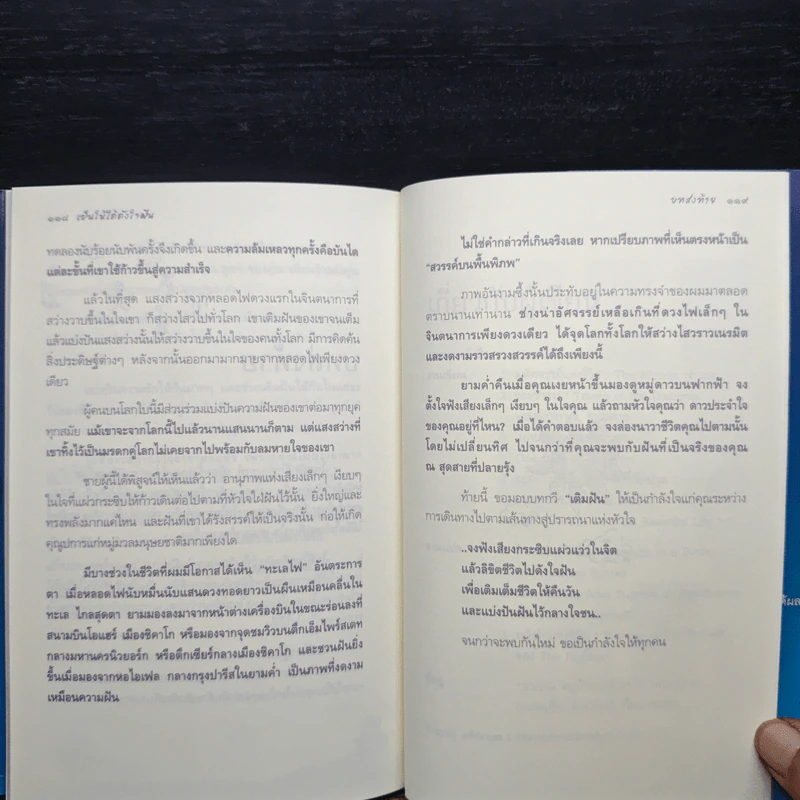 ๑๑๘ เข็นให้ได้ดังใจฝัน
ทดลองนับร้อยนับพันครั้งจึงเกิดขึ้น และความล้มเหลวทุกครั้งคือบันได
แต่ละขั้นที่เขาใช้ก้าวขึ้นสู่ความสำเร็จ
แล้วในที่สุด แสงสว่างจากหลอดไฟดวงแรกในจินตนาการที่
สว่างวาบขึ้นในใจเขา ก็สว่างไสวไปทั่วโลก เขาเติมฝันของเขาจนเต็ม
แล้วแบ่งปันแสงสว่างนั้นให้สว่างวาบขึ้นในใจของคนทั้งโลก มีการคิดค้น
สิ่งประดิษฐ์ต่างๆ หลังจากนั้นออกมามากมายจากหลอดไฟเพียงดวง
เดียว
ผู้คนบนโลกใบนี้มีส่วนร่วมแบ่งปันความฝันของเขาต่อมาทุกยุค
ทุกสมัย แม้เขาจะจากโลกนี้ไปแล้วนานแสนนานก็ตาม แต่แสงสว่างที่
เขาทิ้งไว้เป็นมรดกคู่โลกไม่เคยจากไปพร้อมกับลมหายใจของเขา
ชายผู้นี้ได้พิสูจน์ให้เห็นแล้วว่า อานุภาพแห่งเสียงเล็กๆ เงียบๆ
ในใจที่แผ่วกระซิบให้ก้าวเดินต่อไปตามที่หัวใจใฝ่ฝันไว้นั้น ยิ่งใหญ่และ
ทรงพลังมากแค่ไหน และฝันที่เขาได้รังสรรค์ให้เป็นจริงนั้น ก่อให้เกิด
คุณูปการแก่หมู่มวลมนุษยชาติมากเพียงใด
มีบางช่วงในชีวิตที่ผมมีโอกาสได้เห็น “ทะเลไฟ” อันตระการ
ตา เมื่อหลอดไฟนับหมื่นนับแสนดวงทอดยาวเป็นผืนเหมือนคลื่นใน
ทะเล ไกลสุดตา ยามมองลงมาจากหน้าต่างเครื่องบินในขณะร่อนลงที่
สนามบินโอแฮร์ เมืองชิคาโก หรือมองจากจุดชมวิวบนตึกเอ็มไพร์สเตท
กลางมหานครนิวยอร์ก หรือตึกเซียร์กลางเมืองชิคาโก และชวนฝันยิ่ง
ขึ้นเมื่อมองจากหอไอเฟล กลางกรุงปารีสในยามค่ำ เป็นภาพที่งดงาม
เหมือนความฝัน
บทส่งท้าย ๑๑๙
ไม่ใช่คำกล่าวที่เกินจริงเลย หากเปรียบภาพที่เห็นตรงหน้าเป็น
“สวรรค์บนพื้นพิภพ”
ภาพอันงามซึ้งนั้นประทับอยู่ในความทรงจำของผมมาตลอด
ตราบนานเท่านาน ช่างน่าอัศจรรย์เหลือเกินที่ดวงไฟเล็กๆ ใน
จินตนาการเพียงดวงเดียว ได้จุดโลกทั้งโลกให้สว่างไสวราวเนรมิต
และงดงามราวสรวงสวรรค์ได้ถึงเพียงนี้
ยามค่ำคืนเมื่อคุณเงยหน้าขึ้นมองดูหมู่ดาวบนฟากฟ้า จง
ตั้งใจฟังเสียงเล็กๆ เงียบๆ ในใจคุณ แล้วถามหัวใจคุณว่า ดาวประจำใจ
ของคุณอยู่ที่ไหน? เมื่อได้คำตอบแล้ว จงล่องนาวาชีวิตคุณไปตามนั้น
โดยไม่เปลี่ยนทิศ ไปจนกว่าที่คุณจะพบกับฝันที่เป็นจริงของคุณ
ณ สุดสายที่ปลายรุ้ง
ท้ายนี้ ขอมอบบทกวี “เติมฝัน” ให้เป็นกำลังใจแก่คุณระหว่าง
การเดินทางไปตามเส้นทางสู่ปรารถนาแห่งหัวใจ
..จงฟังเสียงกระซิบแผ่วแว่วในจิต
แล้วลิขิตชีวิตไปดังใจฝัน
เพื่อเติมเต็มชีวิตให้คืนวัน
และแบ่งปันฝันไว้กลางใจชน..
จนกว่าจะพบกันใหม่ ขอเป็นกำลังใจให้ทุกคน